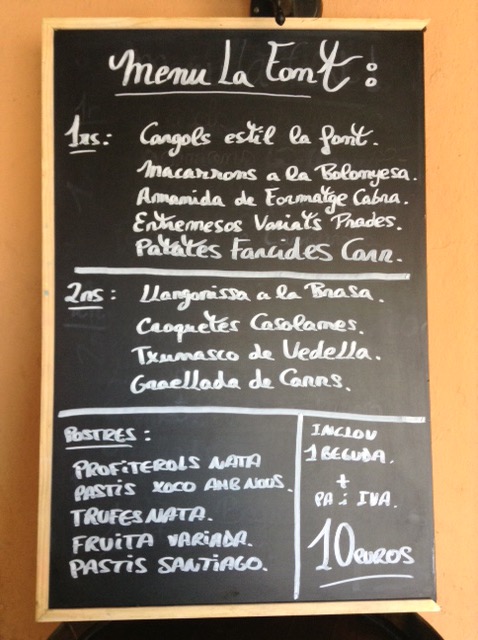 Menu La Font:
1rs: Cargols estil la font.
Macarrons a la Bolonyesa.
Amanida de Formatge Cabra.
Entremesos Variats Prades.
Patates Farcides Carn.
2ns: Llangonissa a la Brasa.
Croquetes Casolanes.
Txumasco de Vedella.
Graellada de Carns.
POSTRES:
PROFITEROLS NATA
PASTIS XOCO AMB NOUS.
TRUFES NATA.
FRUITA VARIADA.
PASTIS SANTIAGO.
INCLOU
1 BEGUDA.
+
PA i IVA.
10 EUROS